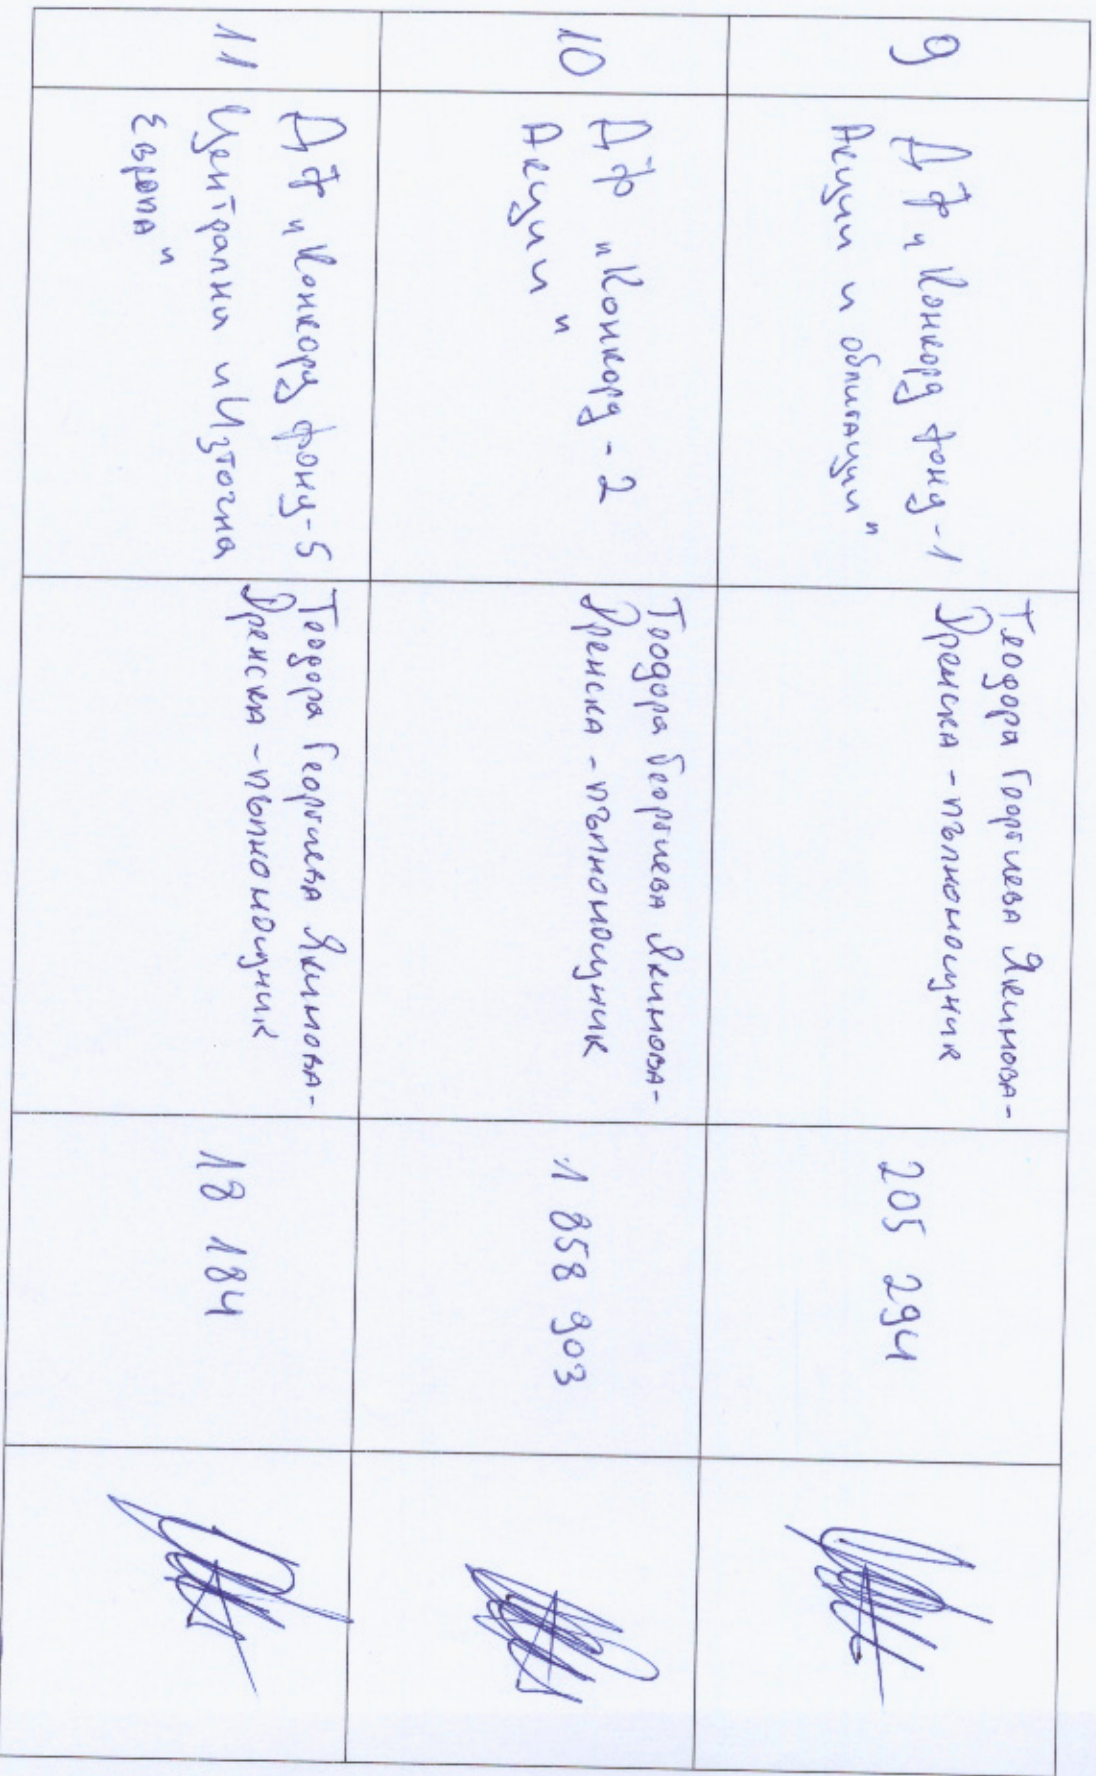 9
ДФ "Конкорд фонд-1
Акции и облигации"
Теодора Георгиева Якимова-
Дренска - пълномощник
205 294
10
ДФ "Конкорд - 2
Акции"
Теодора Георгиева Якимова-
Дренска - пълномощник
1 858 903
11
ДФ "Конкорд фонд-5
Централна и Източна
Европа"
Теодора Георгиева Якимова-
Дренска - пълномощник
18 184